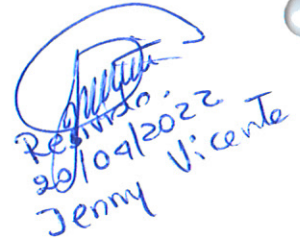 Recivido.
20/04/2022
Jenny Vicente